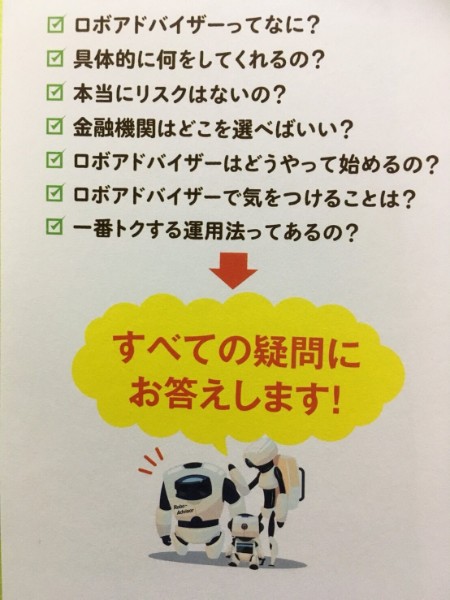 ロボアドバイザーってなに？
具体的に何をしてくれるの？
本当にリスクはないの？
金融機関はどこを選べばいい？
ロボアドバイザーはどうやって始めるの？
ロボアドバイザーで気をつけることは？
一番トクする運用法ってあるの？
すべての疑問に
お答えします！
Robo-
Advisor